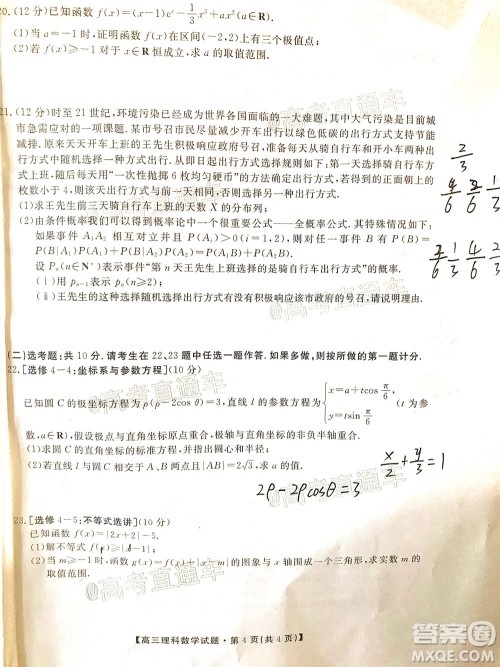 20.(12分)已知函数f(x)=(x-1)eˣ-1/3x³+ax²(a∈R).
(1)当a=-1时,证明函数f(x)在区间(-2,2)上有三个极值点;
(2)若f(x)≥-1对x∈R恒成立,求a的取值范围.
21.(12分)时至21世纪,环境污染已经成为世界各国面临的一大难题,其中大气污染是目前城
市急需应对的一项课题.某市号召市民尽量减少开车出行以绿色低碳的出行方式支持节能
减排.原来天天开车上班的王先生积极响应政府号召,准备每天从骑自行车和开车两种出行
方式中随机选择一种方式出行.从即日起出行方式选择规则如下:第一天选择骑自行车方式
上班,随后每天用"一次性抛掷6枚均匀硬币"的方法确定出行方式,若得到的正面朝上的
枚数小于4,则该天出行方式与前一天相同,否则选择另一种出行方式.
(1)求王先生前三天骑自行车上班的天数X的分布列;
(2)由条件概率我们可以得到概率论中一个很重要公式——全概率公式.其特殊情况如下:
如果事件A₁A₂相互对立并且P(Aᵢ)>0(i=1,2),则对任一事件B有P(B)=
P(B|A₁)P(A₁)+P(B|A₂)P(A₂)=P(A₁B)+P(A₂B).
设Pₙ(n∈N*)表示事件"第n天王先生上班选择的是骑自行车出行方式"的概率.
(ⅰ)用pₙ₋₁表示pₙ(n≥2);
(ⅱ)王先生的这种选择随机选择出行方式有没有积极响应该市政府的号召,请说明理由.
(二)选考题:共10分.请考生在22、23题中任选一题作答.如果多做,则按所做的第一题计分.
22.[选修4-4:坐标系与参数方程](10分)
已知圆C的极坐标方程为ρ(ρ-2cosθ)=a,直线l的参数方程为{x=a+tcosπ/6 y=tsinπ/6 (t为参
数,a∈R),假设极点与直角坐标原点重合,极轴与直角坐标横轴的非负半轴重合.
(1)求圆C的直角坐标方程的标准方程,并讨论a的取值范围;
(2)若直线l与圆C相交于A,B两点且|AB|=2√3,求a的值.
x/2+y/3=1
2ρ-2ρcosθ=3
23.[选修4-5:不等式选讲](10分)
已知函数f(x)=|2x+2|-5.
(1)解不等式f(x)≥|x-1|;
的图象与x轴围成一个三角形,求实数m的
取值范围.
【高三理科数学试题·第4页(共4页)】
2/3
@高考直通车
答案圈
MXQE.COM